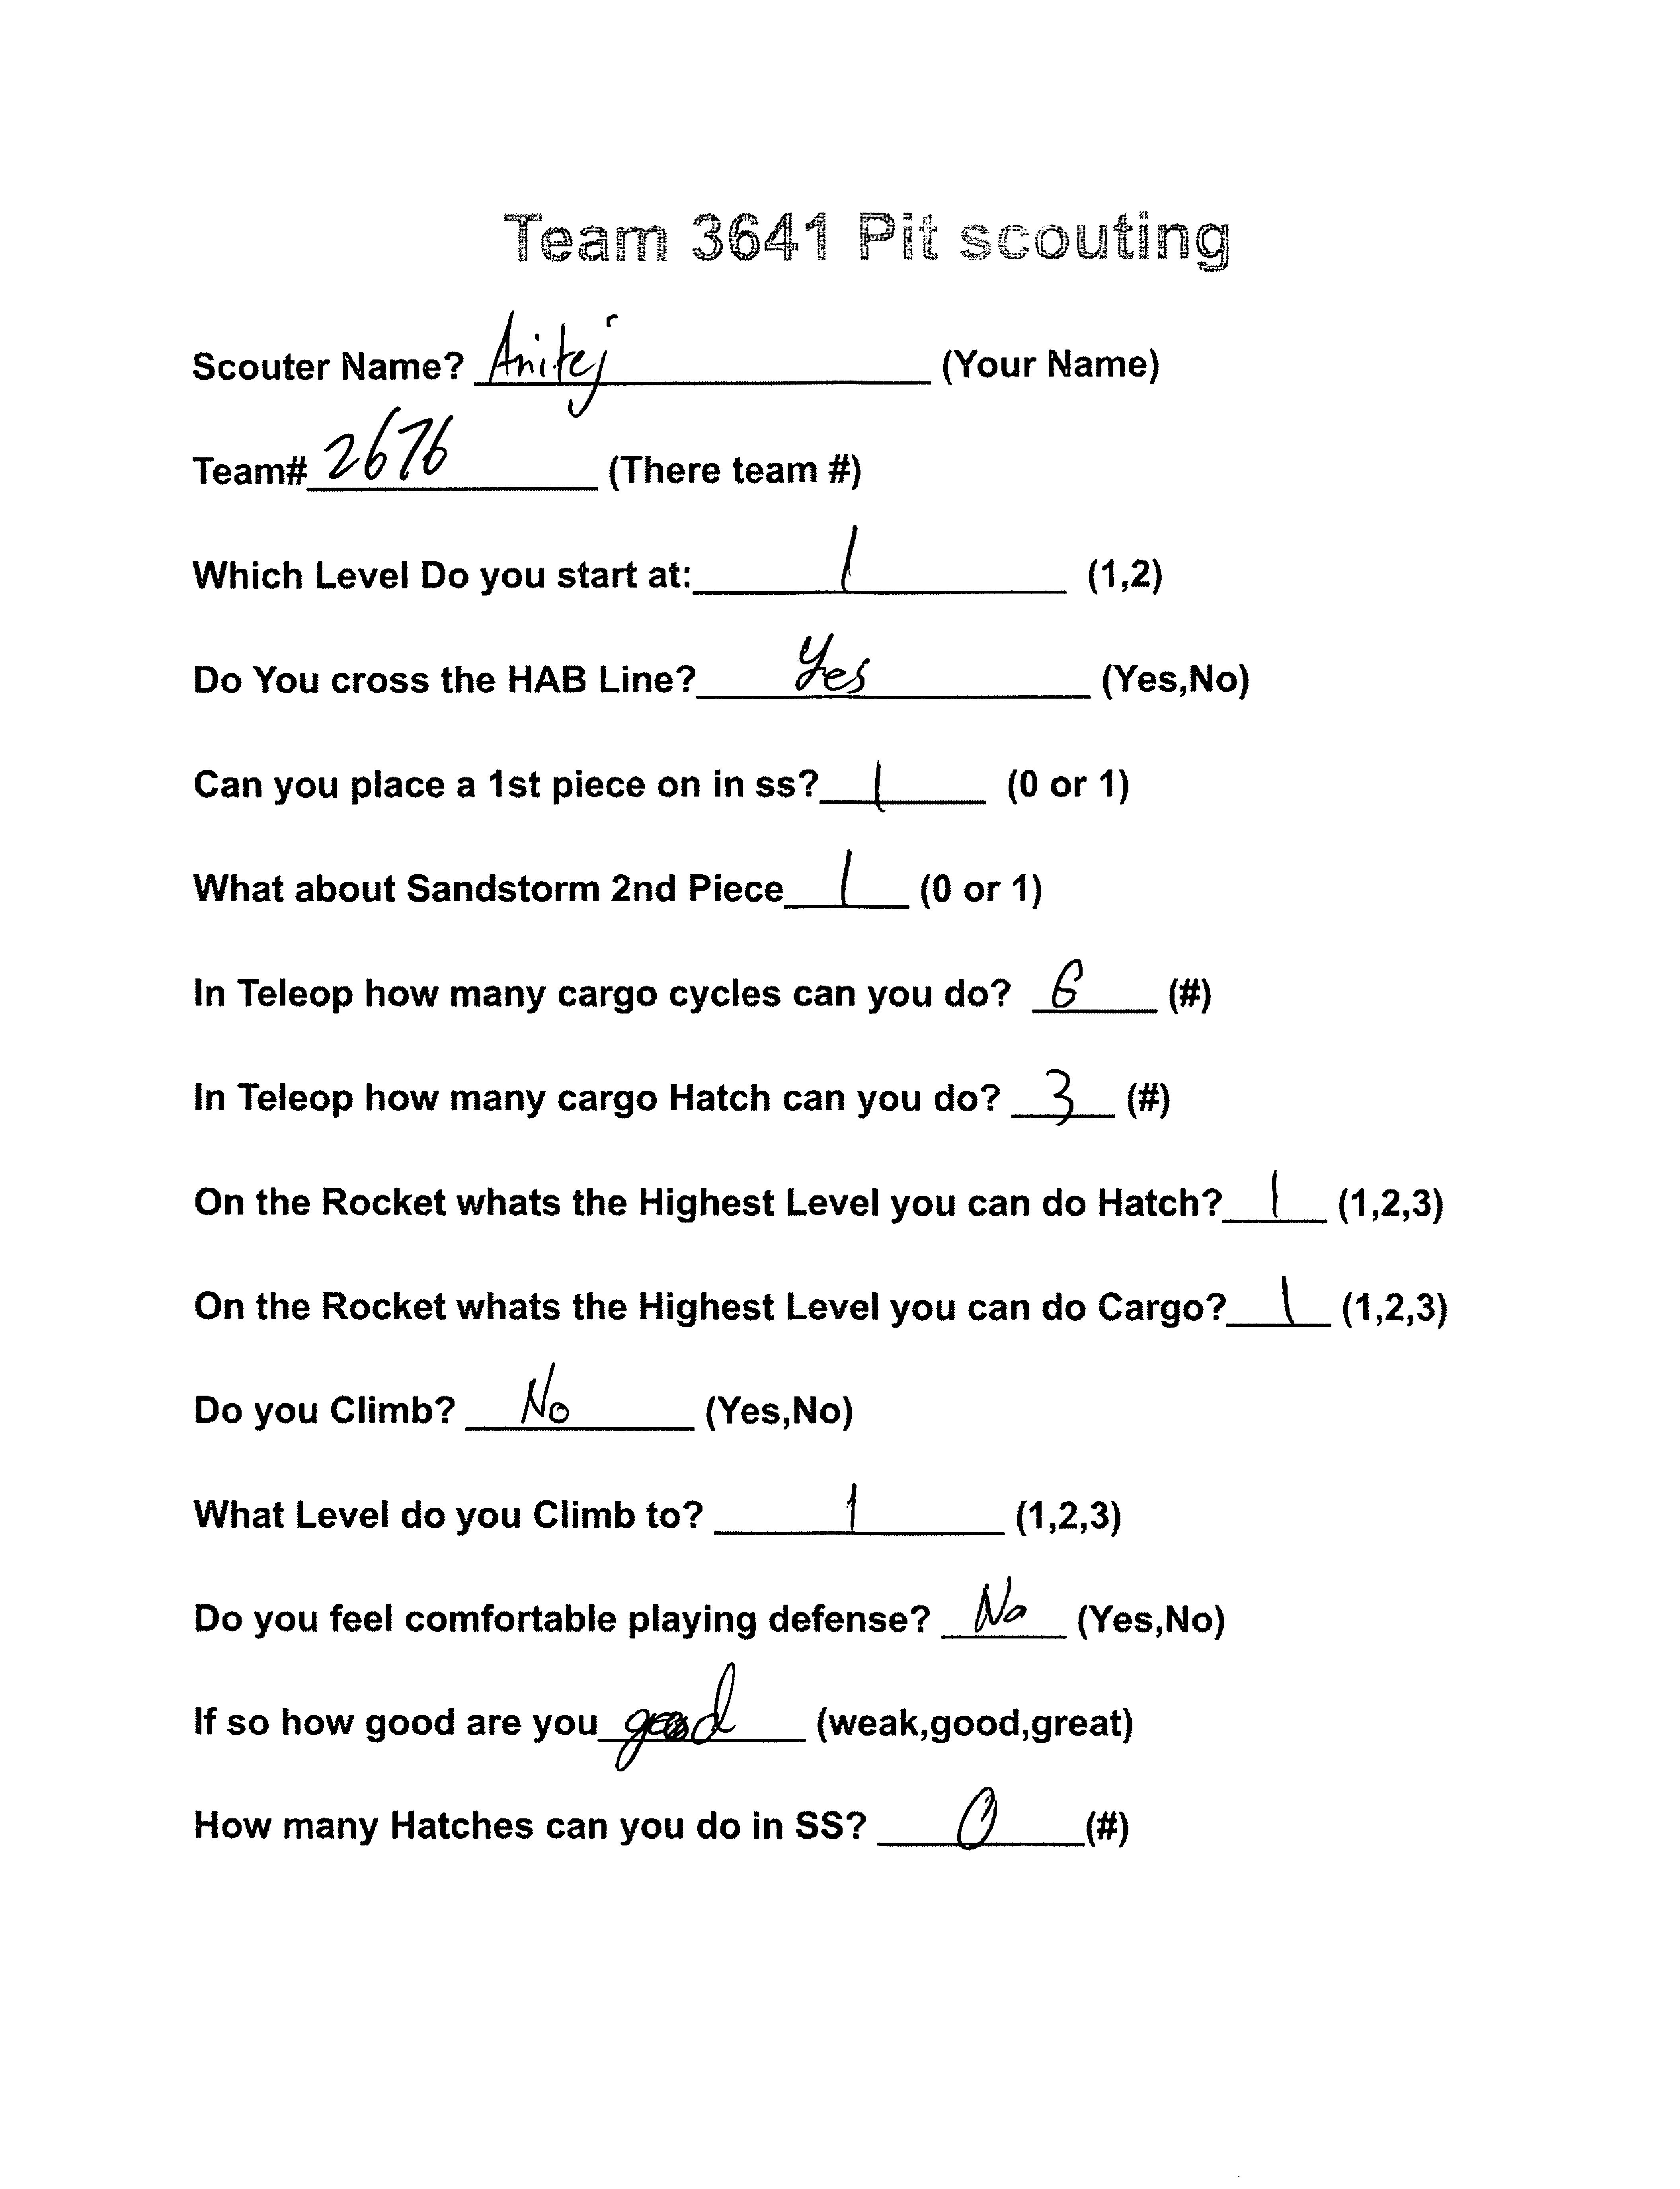 Team 3641 Pit scouting
Scouter Name? Anitej (Your Name)
Team# 2676 (There team #)
Which Level Do you start at: 1 (1,2)
Do You cross the HAB Line? Yes (Yes,No)
Can you place a 1st piece on in ss? 1 (0 or 1)
What about Sandstorm 2nd Piece 1 (0 or 1)
In Teleop how many cargo cycles can you do? 6 (#)
In Teleop how many cargo Hatch can you do? 3 (#)
On the Rocket whats the Highest Level you can do Hatch? 1 (1,2,3)
On the Rocket whats the Highest Level you can do Cargo? 1 (1,2,3)
Do you Climb? No (Yes,No)
What Level do you Climb to? 1 (1,2,3)
Do you feel comfortable playing defense? No (Yes,No)
If so how good are you good (weak,good,great)
How many Hatches can you do in SS? 0 (#)